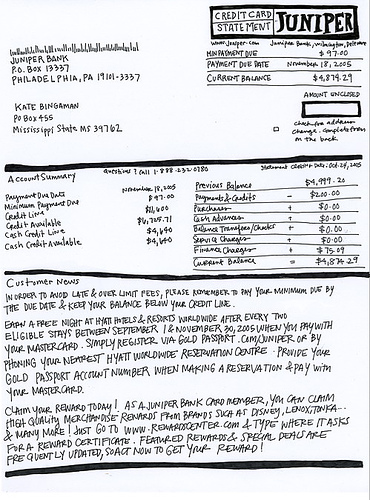 CREDIT CARD STATEMENT JUNIPER
www.Juniper.com Juniper Bank, Wilmington, Delaware
MIN PAYMENT DUE $ 97.00
PAYMENT DUE DATE NOVEMBER 18, 2005
CURRENT BALANCE $4,874.29
AMOUNT ENCLOSED
check for address change. Complete form on the back
JUNIPER BANK
P.O. BOX 13337
PHILADELPHIA, PA 19101-3337
KATE BINGAMAN
PO Box 455
Mississippi State MS 39762
Account Summary
Questions? Call 1-888-232-0780
Statement Closing Date: Oct. 24, 2005
Payment Due Date November 18, 2005
Minimum Payment Due $ 97.00
Credit Line $11,600
Credit Available $6,725.71
Cash Credit Line $4,640
Cash Credit Available $4,640
Previous Balance $4,999.20
Payments & Credits - $200.00
Purchases + $0.00
Cash Advances + $0.00
Balance Transfers/Checks + $0.00
Service Charges + $0.00
Finance Charges + $75.09
Current Balance = $4,874.29
Customer News
IN ORDER TO AVOID LATE & OVER LIMIT FEES, PLEASE REMEMBER TO PAY YOUR MINIMUM DUE BY
THE DUE DATE & KEEP YOUR BALANCE BELOW YOUR CREDIT LINE.
EARN A FREE NIGHT AT HYATT HOTELS & RESORTS WORLDWIDE AFTER EVERY TWO
ELIGIBLE STAYS BETWEEN SEPTEMBER 1 & NOVEMBER 30, 2005 WHEN YOU PAY WITH
YOUR MASTERCARD. SIMPLY REGISTER VIA GOLD PASSPORT.COM/JUNIPER OR BY
PHONING YOUR NEAREST HYATT WORLDWIDE RESERVATION CENTRE. PROVIDE YOUR
GOLD PASSPORT ACCOUNT NUMBER WHEN MAKING A RESERVATION & PAY WITH
YOUR MASTERCARD.
CLAIM YOUR REWARD TODAY! AS A JUNIPER BANK CARD MEMBER, YOU CAN CLAIM
HIGH QUALITY MERCHANDISE REWARDS FROM BRANDS SUCH AS DISNEY, LENOX, TONKA...
& MANY MORE! JUST GO TO WWW.REWARDSCENTER.COM & TYPE WHERE IT ASKS
FOR A REWARD CERTIFICATE. FEATURED REWARDS & SPECIAL DEALS ARE
FREQUENTLY UPDATED, SO ACT NOW TO GET YOUR REWARD!